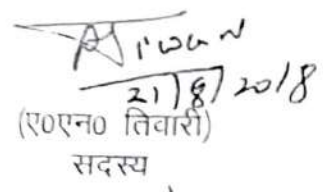 21/8/2018
(ए०एन० तिवारी)
सदस्य